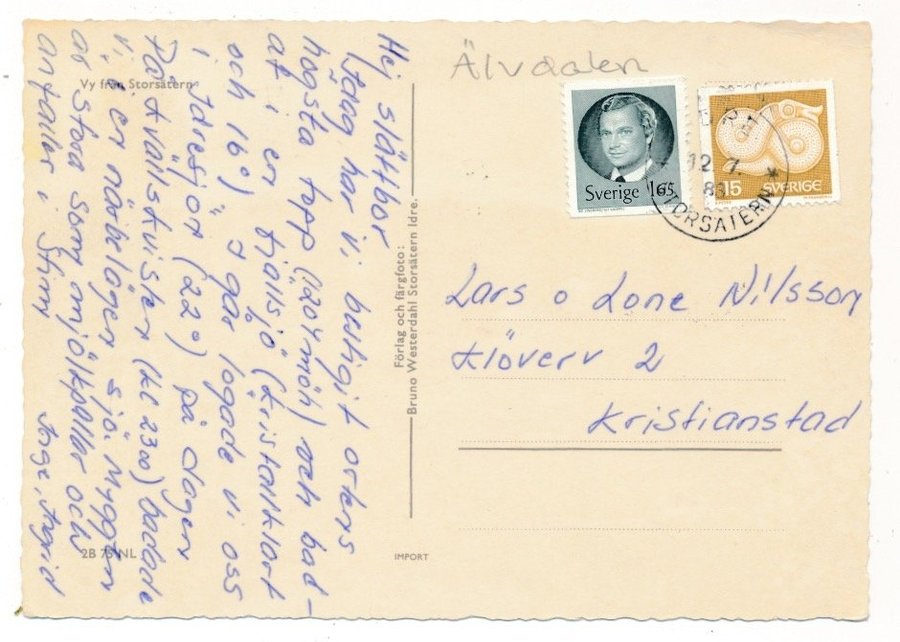 Hej slättbor
Idag har vi bestigit ortens
högsta topp (1204 möh) och bad-
at i en fjällsjö (kristallklart
och 16°) Igår lögade vi oss
i Idresjön (22°) på dagen
På kvällskvisten (kl 2300) badade
vi i en närbelägen sjö. Myggen
är stora som mjölkpallar och
anfaller i
Inge, Ingrid
Vy från Storsätern
2B 75 NL
Förlag och färgfoto:
Bruno Westerdahl Storsätern Idre.
IMPORT
Älvdalen
Sverige 165
15 SVERIGE
12.7.
STORSÄTERN *
Lars o Lone Nilsson
Klöverv 2
Kristianstad